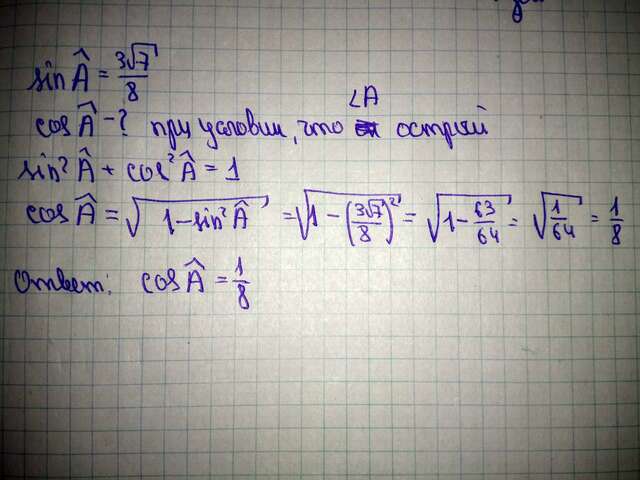 sin Â = 3√7/8
cos Â - ? при условии, что ∠A острый
sin² Â + cos² Â = 1
cos Â = √(1 - sin² Â) = √(1 - (3√7/8)²) = √(1 - 63/64) = √(1/64) = 1/8
Ответ: cos Â = 1/8